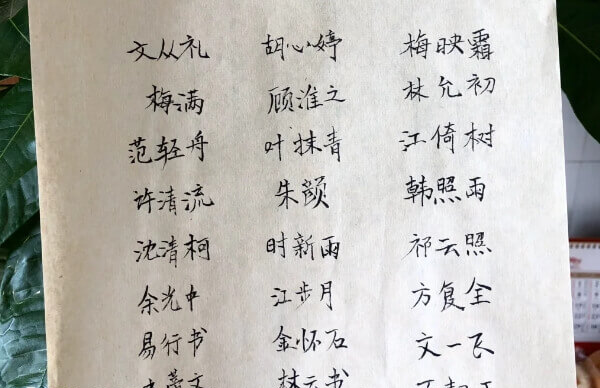 文从礼 胡心婷 梅映霜
梅满 顾淮之 林允初
范轻舟 叶抹青 江倚树
许清流 朱颜 韩照雨
沈清柯 时新雨 祁云照
余光中 江步月 方复全
易行书 金怀石 文一飞